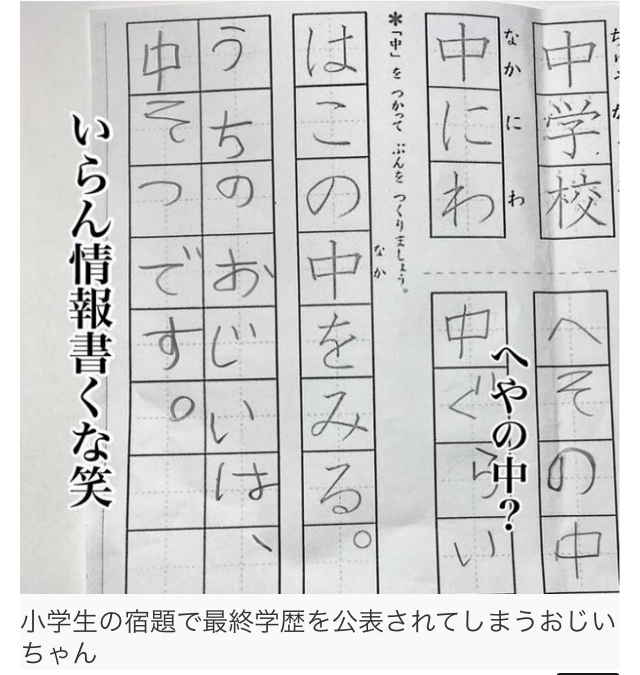 中学校
へその中
なかにわ
中にわ
中ぐらい
へやの中？
＊「中」を つかって ぶんを つくりましょう。
なか
はこの中をみる。
うちのおじいは、
中そつです。
いらん情報書くな笑
小学生の宿題で最終学歴を公表されてしまうおじい
ちゃん